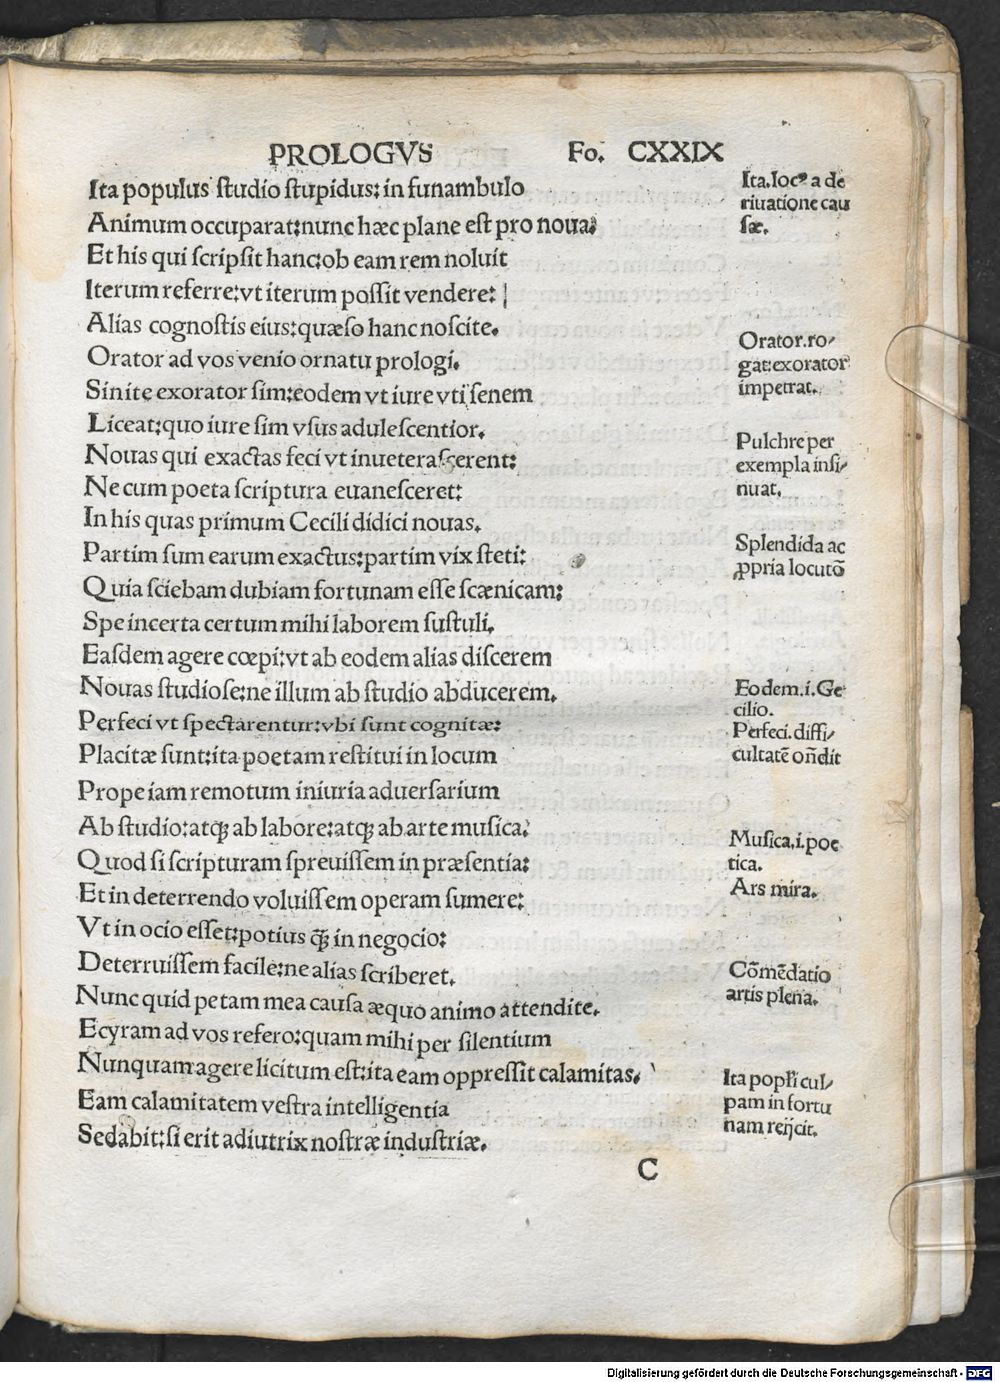 PROLOGVS Fo. CXXIX
Ita populus studio stupidus: in funambulo
Animum occuparat: nunc hæc plane est pro noua:
Et his qui scripsit hanc: ob eam rem noluit
Iterum referre: vt iterum possit vendere:
Alias cognostis eius: quæso hanc noscite.
Orator ad vos venio ornatu prologi.
Sinite exorator sim: eodem vt iure vti senem
Liceat: quo iure sim vsus adulescentior.
Nouas qui exactas feci vt inueterascerent:
Ne cum poeta scriptura evanesceret:
In his quas primum Cecili didici nouas.
Partim sum earum exactus: partim vix steti:
Quia sciebam dubiam fortunam esse scænicam:
Spe incerta certum mihi laborem sustuli.
Easdem agere cœpi: vt ab eodem alias discerem
Nouas studiose: ne illum ab studio abducerem.
Perfeci vt spectarentur: vbi sunt cognitæ:
Placitæ sunt: ita poetam restitui in locum
Prope iam remotum iniuria aduersarium
Ab studio: atq; ab labore: atq; ab arte musica:
Quod si scripturam spreuissem in præsentia:
Et in deterrendo voluissem operam sumere:
Vt in ocio esset: potius q̃ in negocio:
Deterruissem facile: ne alias scriberet.
Nunc quid petam mea causa æquo animo attendite.
Ecyram ad vos refero: quam mihi per silentium
Nunquam agere licitum est: ita eam oppressit calamitas.
Eam calamitatem vestra intelligentia
Sedabit: si erit adiutrix nostræ industriæ.
C
Ita. locꝰ a de
riuatione cau
sæ.
Orator. ro/
gat: exorator
impetrat.
Pulchre per
exempla insi/
nuat.
Splendida ac
ꝓpria locutõ
Eodem. i. Ce
cilio.
Perfeci. diffi/
cultatẽ oñdit
Musica. i. poe
tica.
Ars mira.
Cõmẽdatio
artis plena.
Ita popli cul/
pam in fortu
nam reijcit.
Digitalisierung gefördert durch die Deutsche Forschungsgemeinschaft - DFG